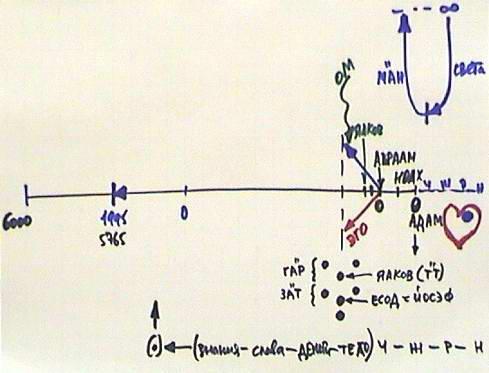 ∞
МА"Н
света
ОМ
ЯАКОВ
АВРААМ
НОАХ
Ч Ж Р Н
6000
1995
5765
0
ЭГО
АДАМ
ГА"Р
ЯАКОВ (Т"Т)
ЗА"Т
ЕСОД = ЙОСЭФ
(знания-слава-деньги-тело) Ч - Ж - Р - Н